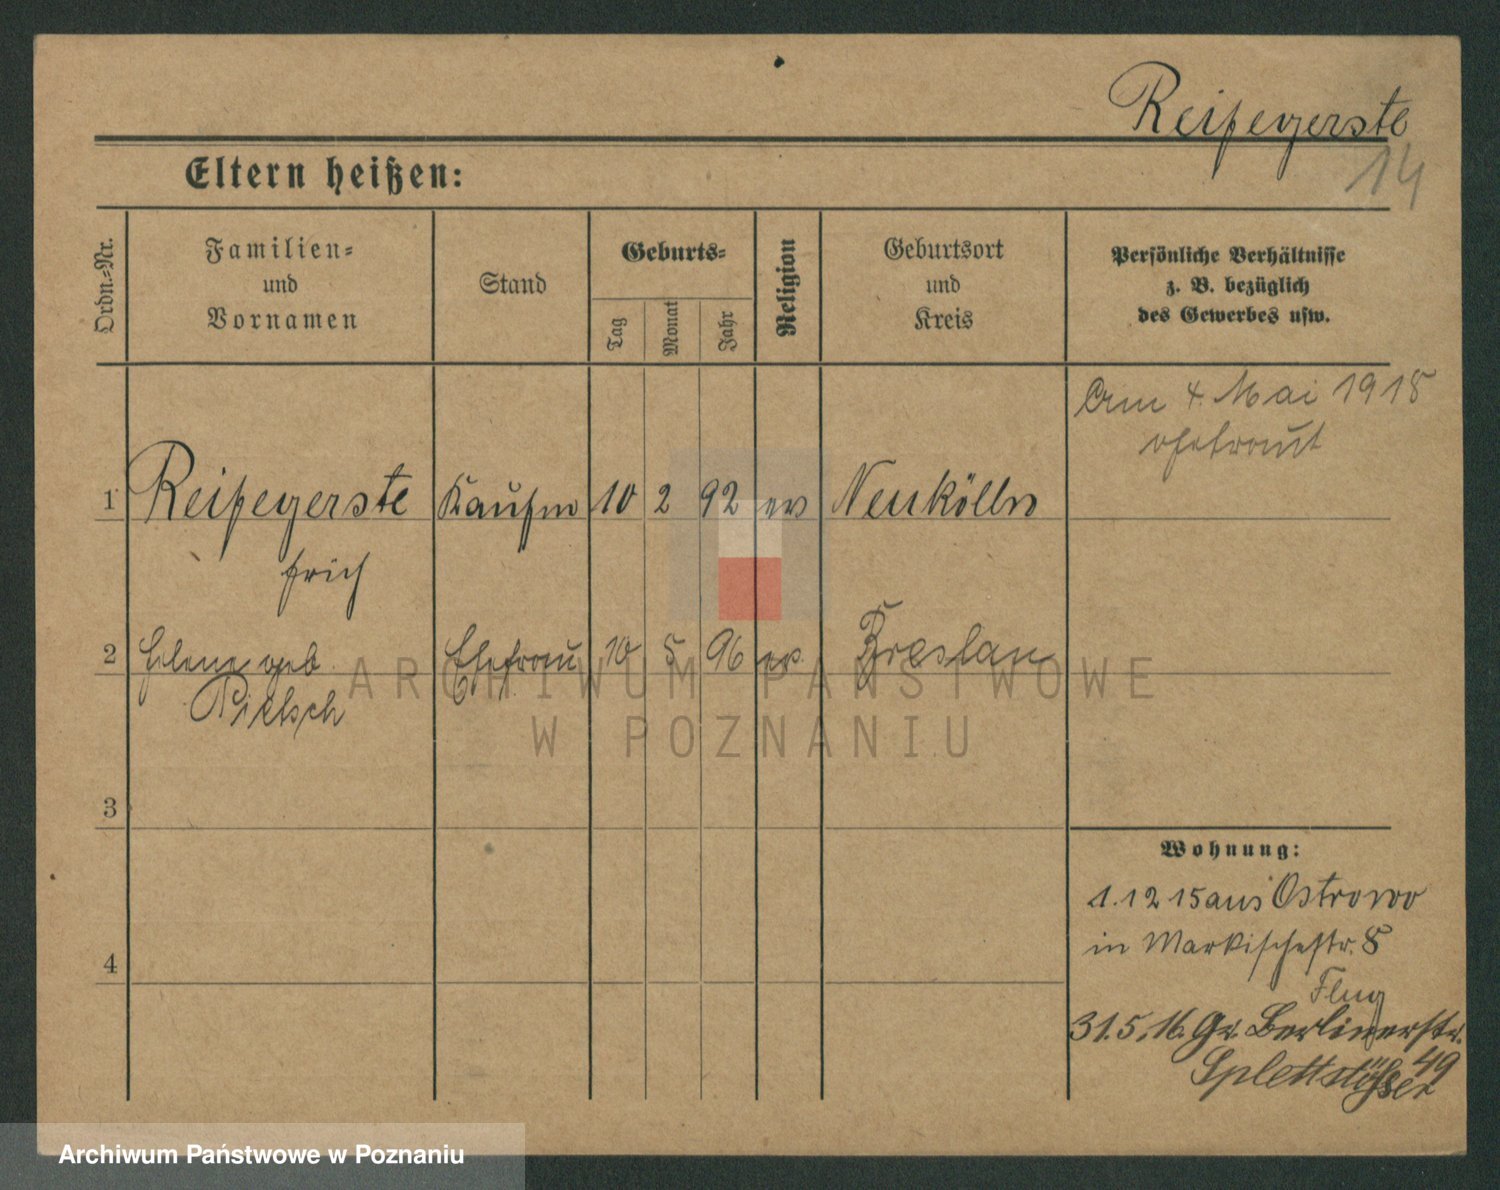 Reifegerste
14
Eltern heißen:
Ordn.-Nr.
Familien-
und
Vornamen
Stand
Geburts-
Tag
Monat
Jahr
Religion
Geburtsort
und
Kreis
Persönliche Verhältnisse
z. B. bezüglich
des Gewerbes usw.
Am 4. Mai 1918
getraut
1 Reifegerste Kaufm 10 2 92 ev Neukölln
Erich
2 Helene geb Ehefrau 10 5 96 ev. Breslau
Pietsch
3
4
Wohnung:
1.12 15 aus Ostrowo
in Markischestr. 8
Flug
31.5.16. Gr. Berlinerstr.
49
Splettstößer
ARCHIWUM PAŃSTWOWE
W POZNANIU
Archiwum Państwowe w Poznaniu